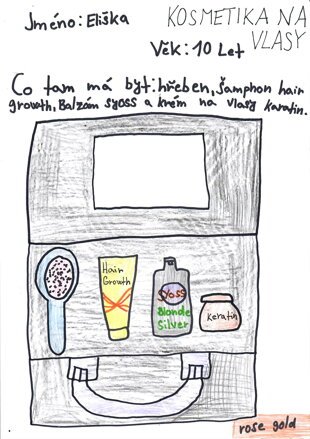 Jméno: Eliška
KOSMETIKA NA
VLASY
Věk: 10 Let
Co tam má být: hřeben, Šamphon hair
growth, Balzám syoss a krém na vlasy Karatin.
Hair
Growth
Syoss
Blonde
Silver
Keratin
rose gold